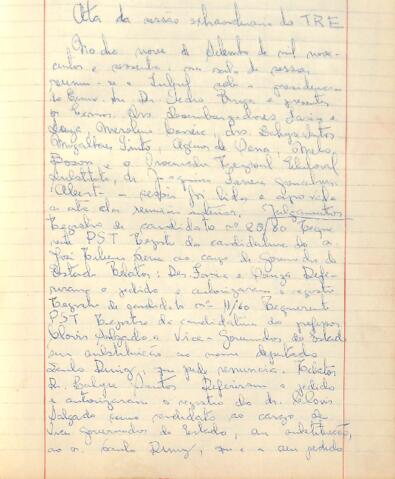 Ata da sessão extraordinária do TRE
No dia nove de Setembro de mil nove-
centos e sessenta, na sala de sessões,
reuniu-se o Tribunal sob a presidência
do Exmo. Snr. Dr. Pedro Braga e presentes
os Exmos. Srs. Desembargadores Faria e
Souza, Merolino Corrêa, drs. Dalya Santos
Magalhães Pinto, Melo,
Boson e o Procurador Regional Eleitoral
Substituto, dr. Joaquim Ferreira Gonçalves
Aberta a sessão foi lida e aprovada
a ata da reunião anterior. Julgamentos
Registro de candidato nº 20/60 Reque-
rente PST Registro da candidatura do sr.
José Ribeiro Pena ao cargo de Governador do
Estado Relator: Des. Faria e Souza Defe-
riram o pedido e autorizaram o registro
Registro de candidato nº 11/60 Requerente
PST Registro da candidatura do professor
Clovis Salgado a Vice-Governador do Estado
em substituição ao nome deputado
Saulo Diniz, que pede renuncia. Relator
Dr. Santos Deferiram o pedido
e autorizaram o registro do dr. Clovis
Salgado como candidato ao cargo de
Vice governador do Estado, em substituição,
ao sr. Saulo Diniz, que a seu pedido